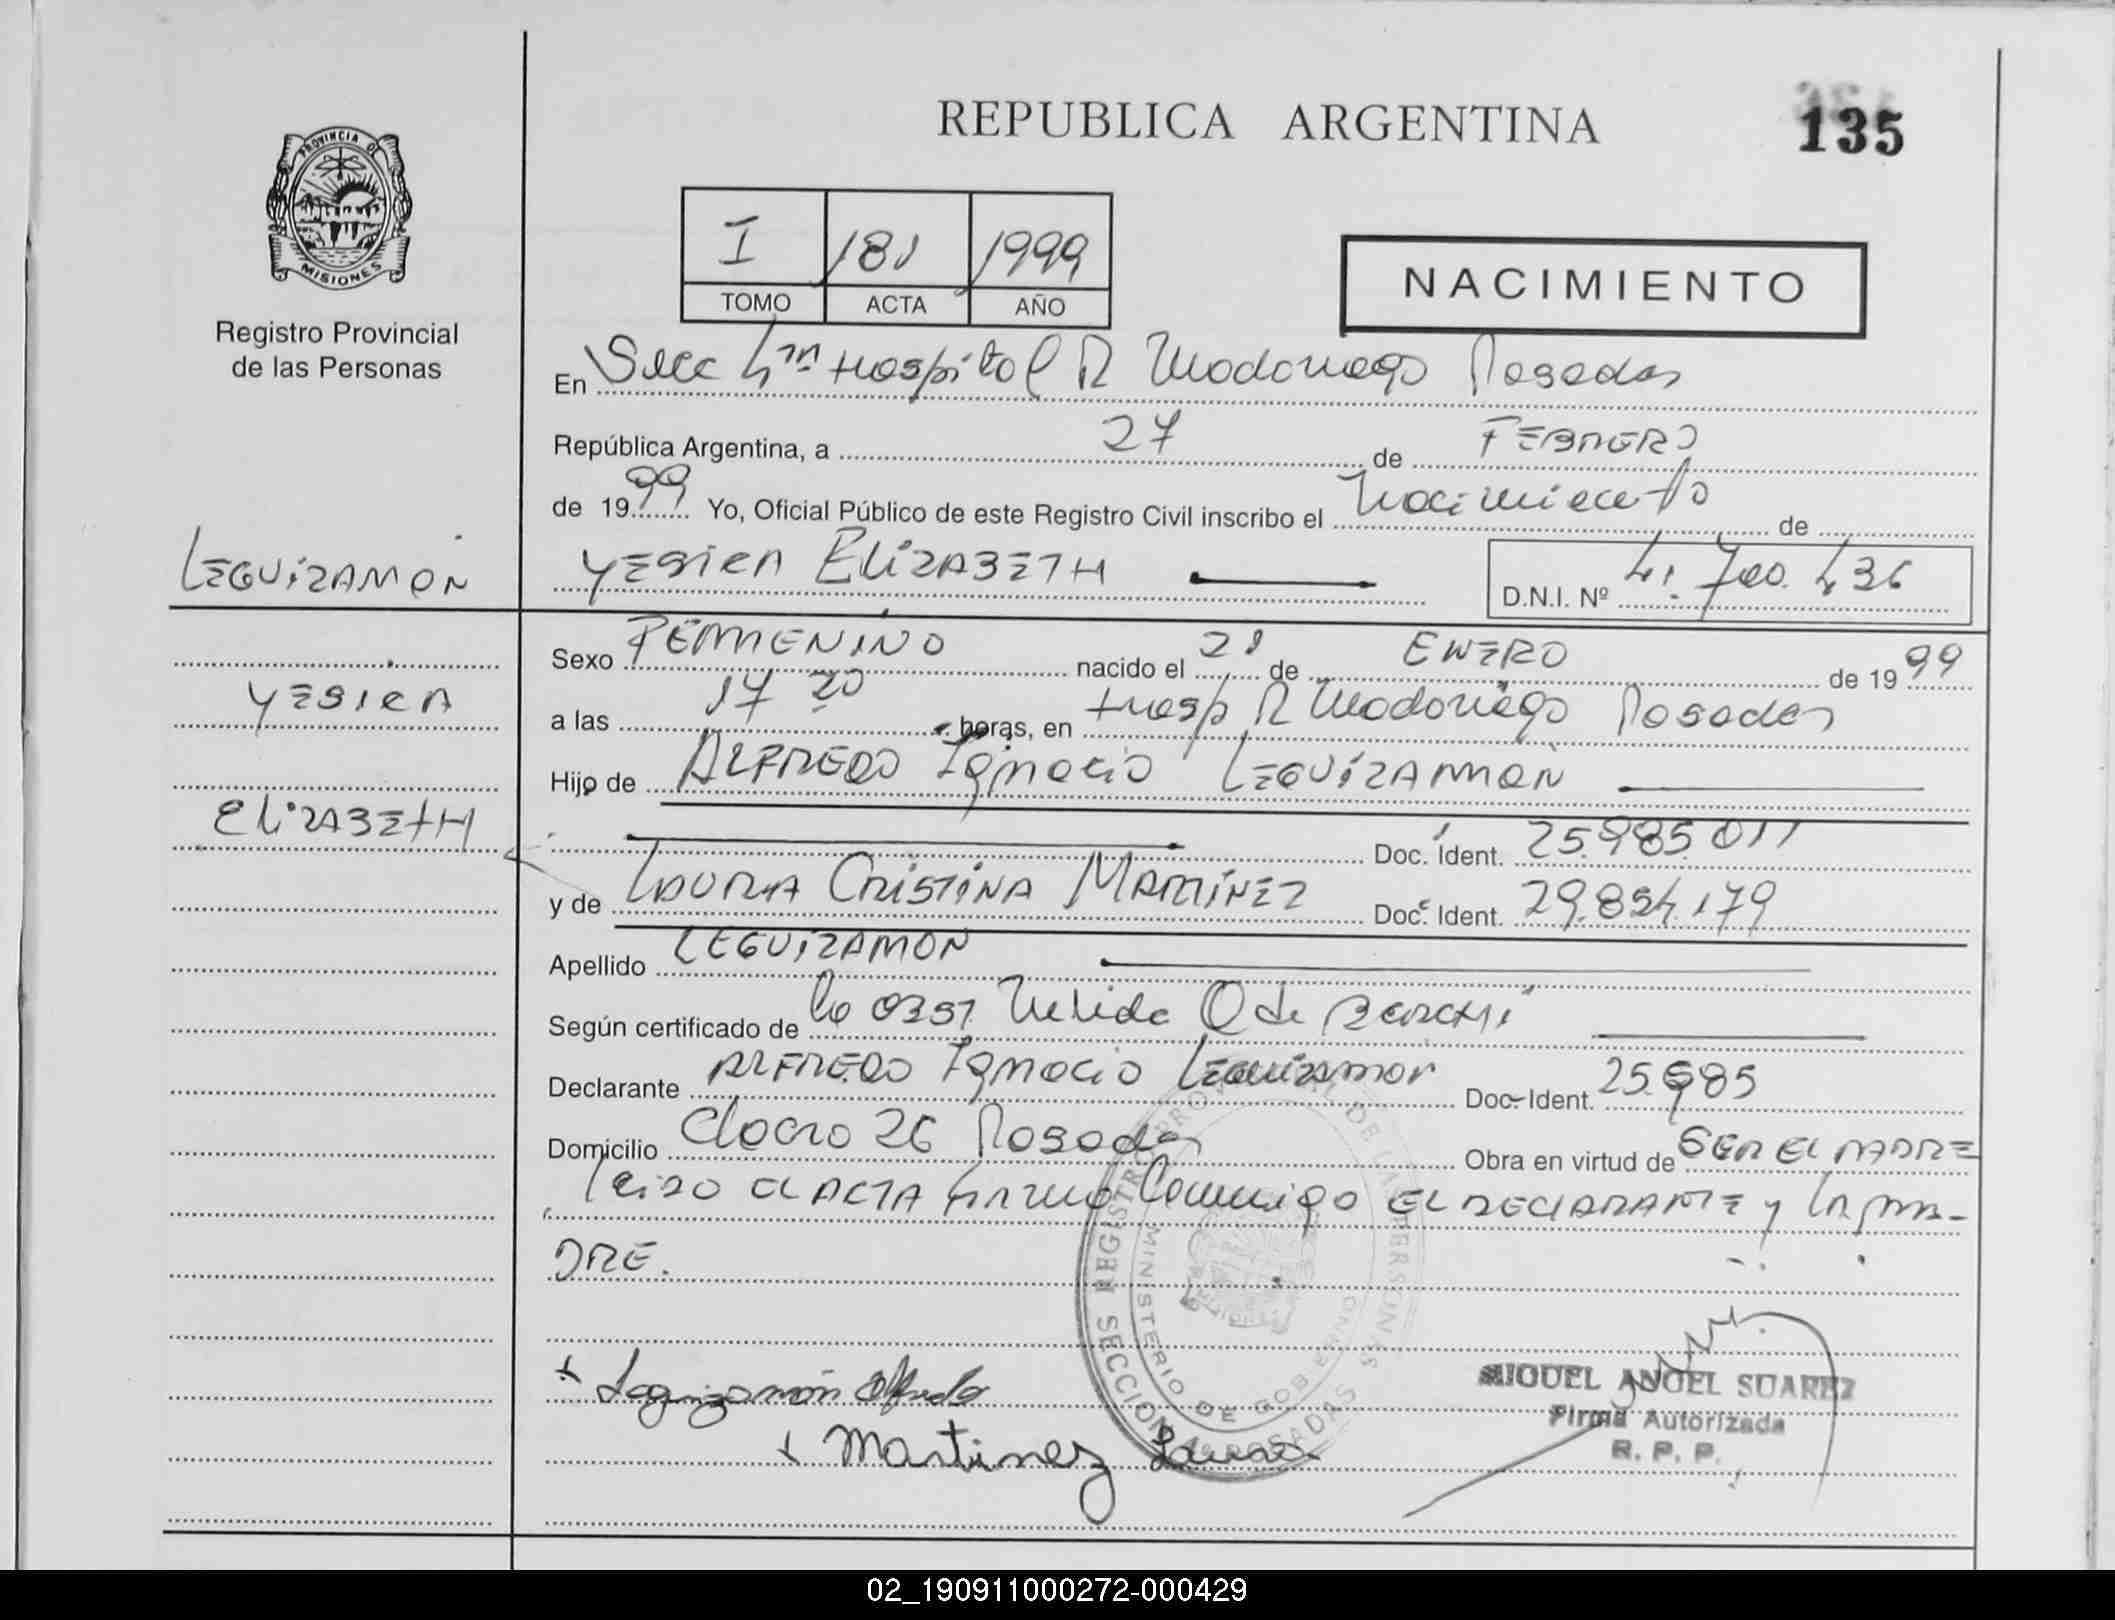 REPUBLICA ARGENTINA
135
PROVINCIA DE
MISIONES
Registro Provincial
de las Personas
I 181 1999
TOMO ACTA AÑO
NACIMIENTO
En Secc 4ta Hospital R Madariaga Posadas
República Argentina, a 27 de FEBRERO
de 1999 Yo, Oficial Público de este Registro Civil inscribo el Nacimiento de
LEGUIZAMON
YESICA ELIZABETH
D.N.I. Nº 41.700.436
Sexo FEMENINO nacido el 28 de ENERO de 1999
YESICA
a las 17 20 horas, en Hosp R Madariaga Posadas
Hijo de ALFREDO Ignacio LEGUIZAMON
ELIZABETH
Doc. Ident. 25.985.011
y de LAURA CRISTINA MARTINEZ Doc. Ident. 29.854.179
Apellido LEGUIZAMON
Según certificado de la Obst Nelida de
Declarante ALFREDO Ignacio Leguizamon Doc. Ident. 25.985
Domicilio 26 Posadas Obra en virtud de SER EL PADRE
Leido el ACTA firma conmigo EL DECLARANTE y la MA-
DRE.
REGISTRO PROVINCIAL DE LAS PERSONAS
MINISTERIO DE GOBIERNO
SECCION 4a POSADAS
Leguizamón Alfredo
Martinez Laura
MIGUEL ANGEL SUAREZ
Firma Autorizada
R. P. P.
02_190911000272-000429